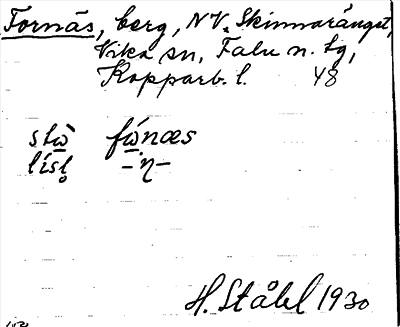 Fornäs, berg, NV. Skinnaränget,
Vika sn, Falu n. tg,
Kopparb. l. 48
stὼ fώnæs
lísl̥ -η-
H. Ståhl 1930